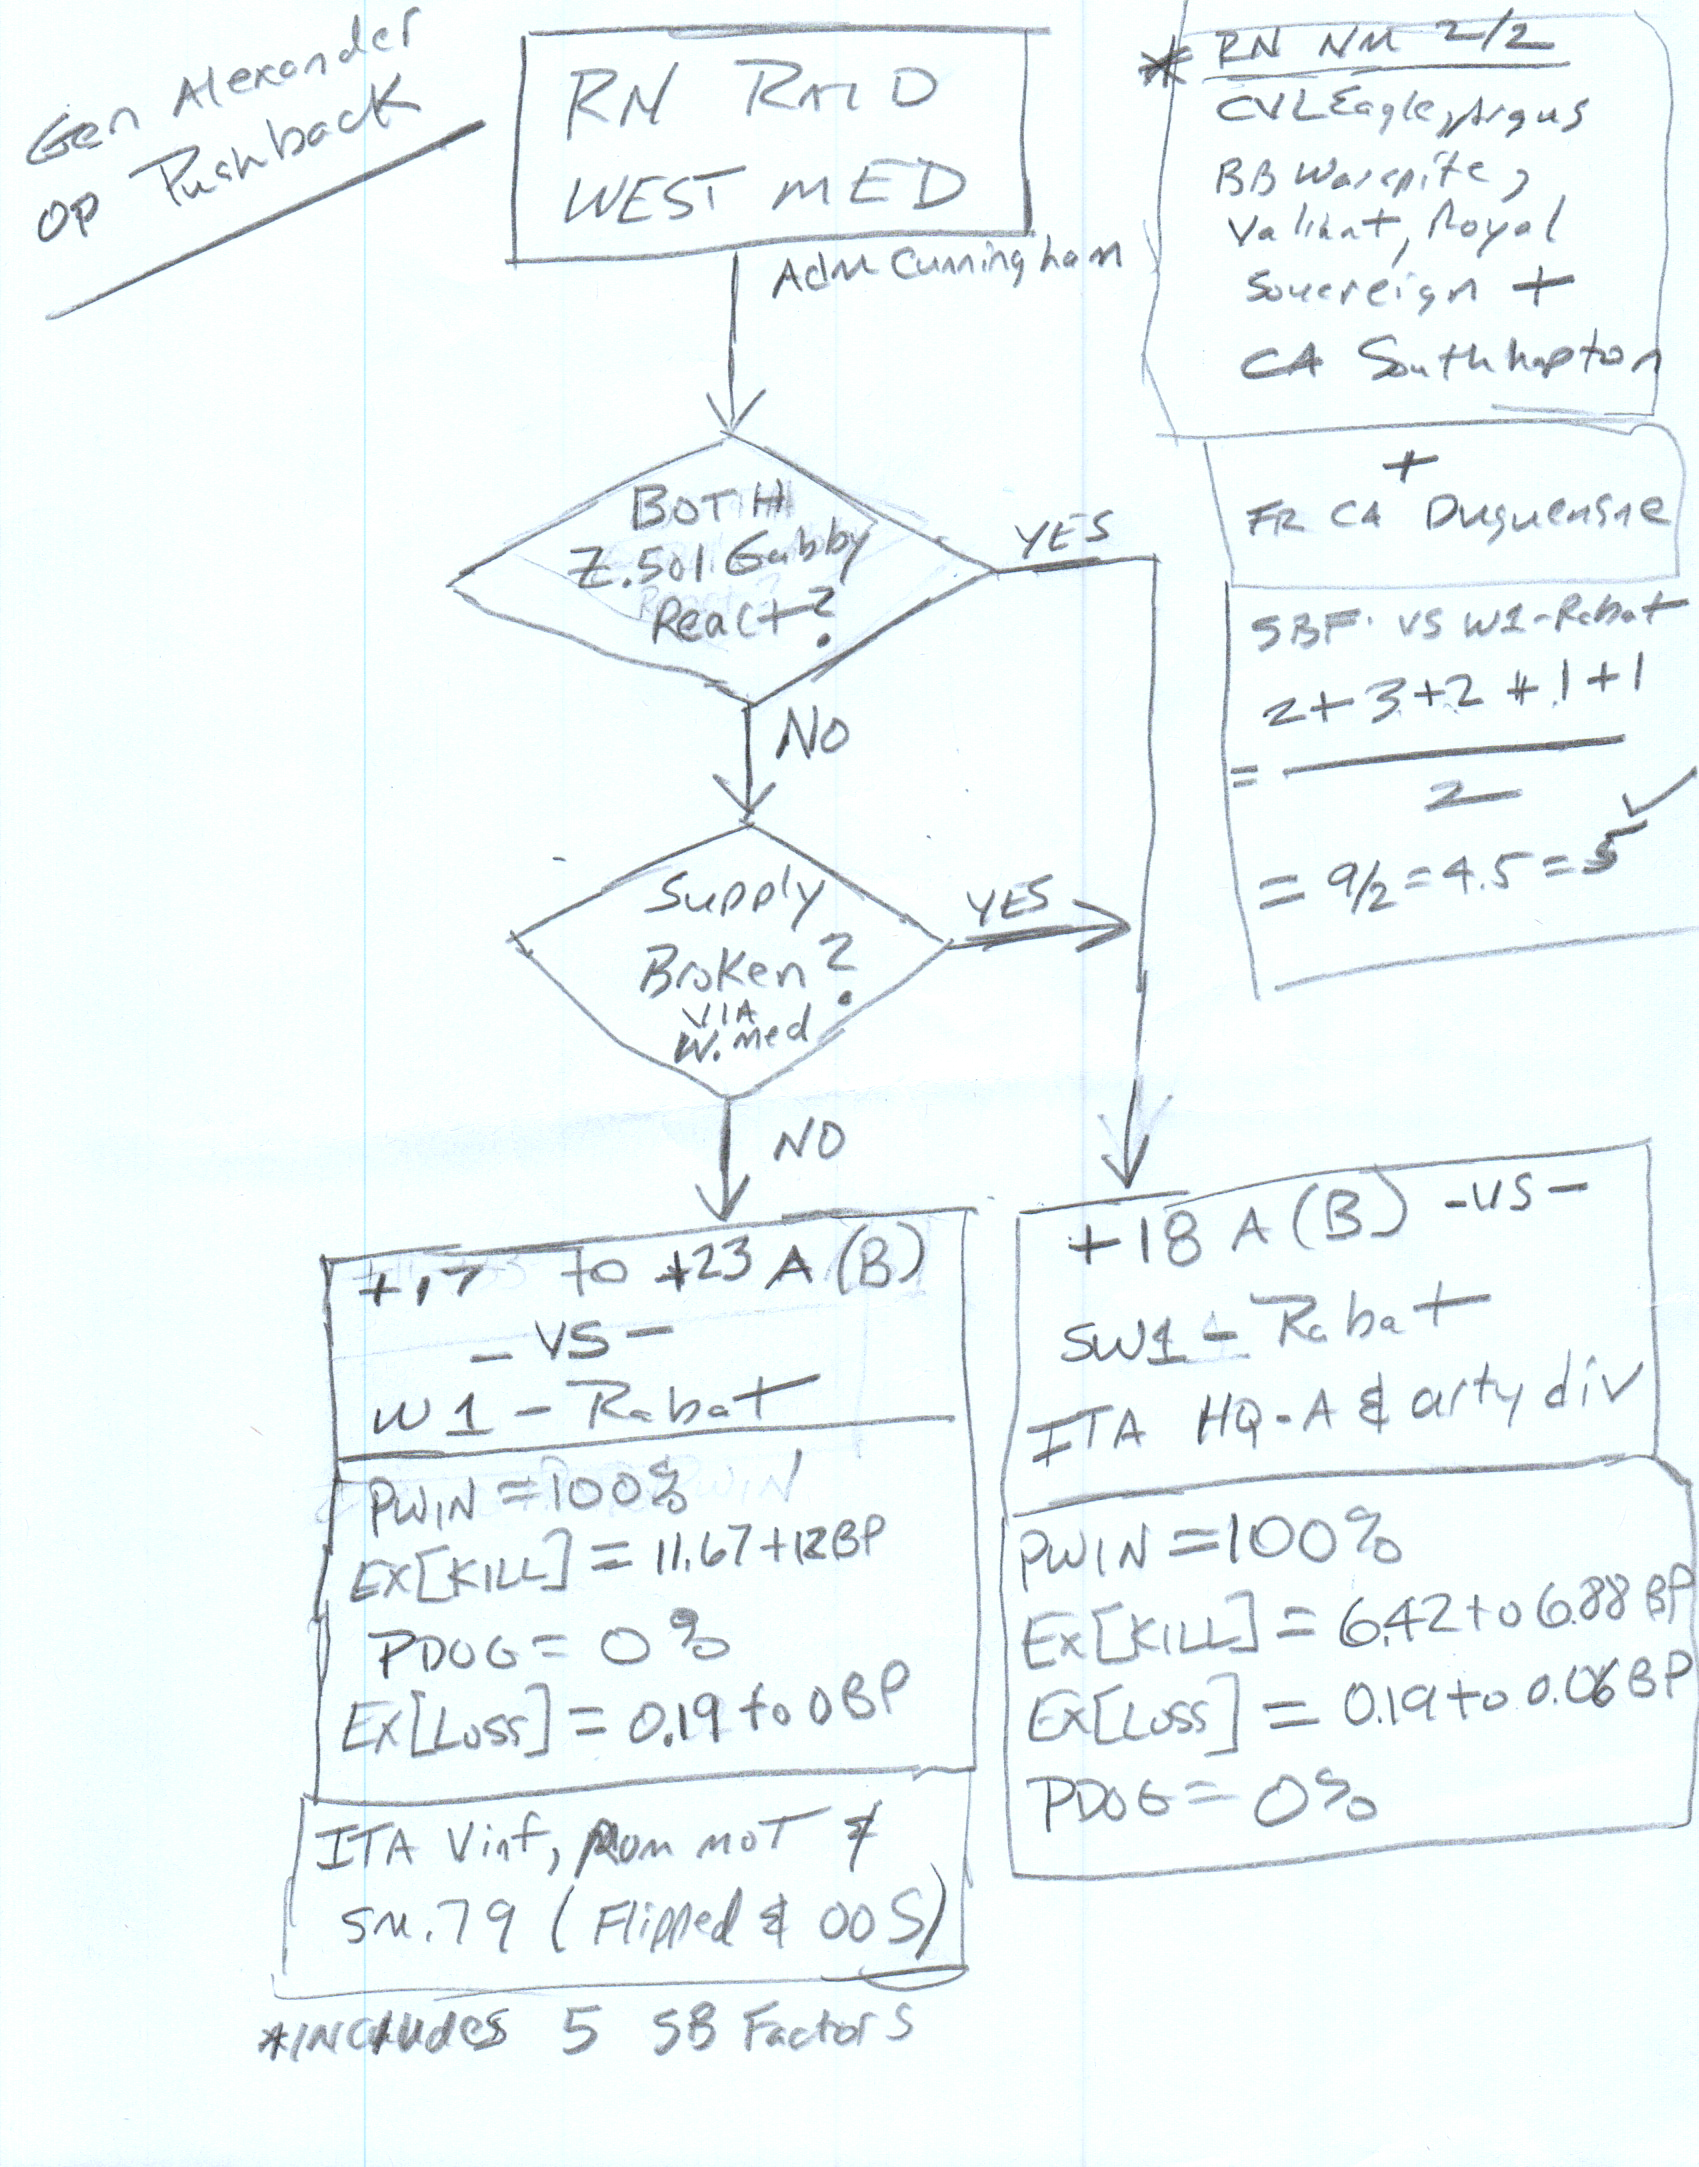 Gen Alexander
Op Pushback
RN RAID
WEST MED
Adm Cunningham
* RN NM 2/2
CVL Eagle, Argus
BB Warspite,
Valiant, Royal
Sovereign +
CA Southhapton
+
FR CA Duquensne
SBF VS W1-Rabat
2+3+2+1+1
=
2
= 9/2 = 4.5 = 5 ✓
BOTH
Z.501 Gabby
React?
YES
NO
Supply
Broken?
VIA
W. Med
YES
NO
+17 to +23 A (B)
- VS -
W1 - Rabat
PWIN = 100%
EX[KILL] = 11.67+12BP
PDOG = 0%
EX[LOSS] = 0.19 to 0 BP
ITA Vinf, Rom MOT &
SM.79 (Flipped & OOS)
*INCludes 5 SB Factors
+18 A (B) -VS-
SW1 - Rabat
ITA HQ-A & arty div
PWIN = 100%
EX[KILL] = 6.42 to 6.88 BP
EX[LOSS] = 0.19 to 0.06 BP
PDOG = 0%